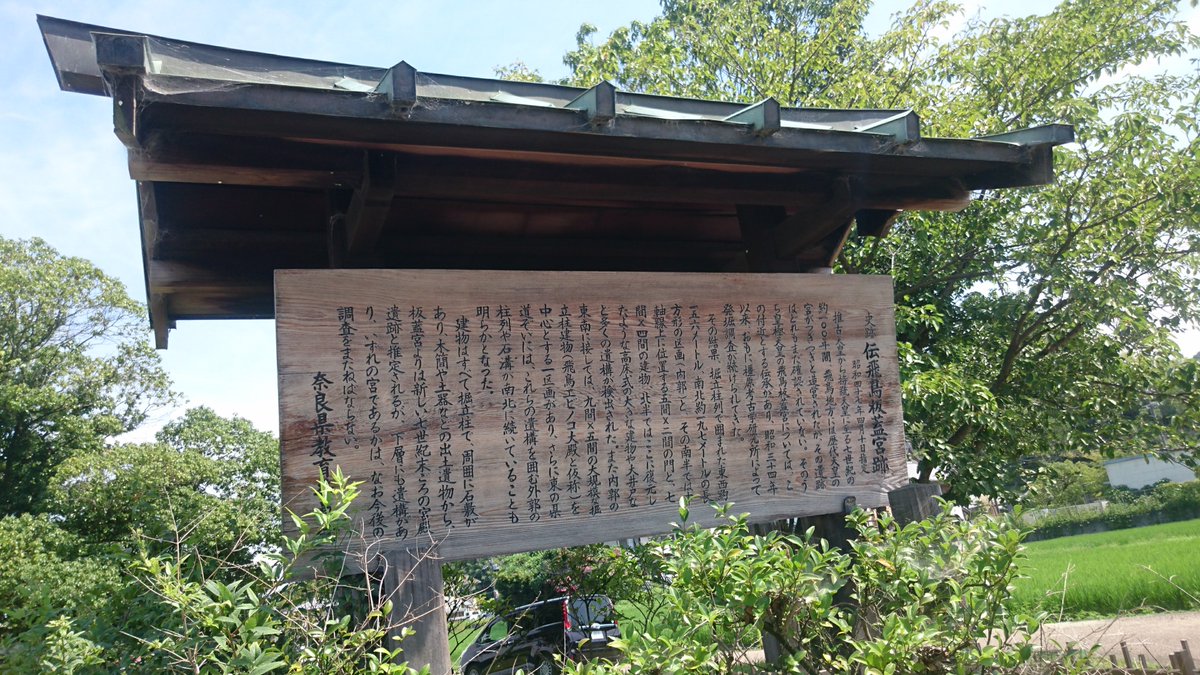 史跡 伝飛鳥板蓋宮跡
昭和四十七年四月十日指定
推古天皇から持統天皇に至る七世紀の
約一〇〇年間、飛鳥地方には歴代天皇の
宮がつぎつぎと造営されたが、その遺跡
はいずれもまだ確認されていない。そのう
ち皇極天皇の飛鳥板蓋宮については、こ
の付近とする伝承があり、昭和三十四年
以来、おもに橿原考古学研究所によって
発掘調査が続けられてきた。
その結果、掘立柱列で囲まれた東西約
一五六メートル、南北約一九七メートルの長
方形の区画(内郭)と、その南半では
軸線上に位置する五間×二間の門と、七
間×四間の建物、北半ではここに復元し
たような高床式の大きな建物や大井戸な
ど多くの遺構が検出された。また内郭の
東南に接しては、九間×五間の大規模な掘
立柱建物(飛鳥エビノコ大殿と仮称)を
中心とする一区画があり、さらに東の県
道ぞいには、これらの遺構を囲む外郭の
柱列や石溝が南北に続いていることも
明らかとなった。
建物はすべて掘立柱で、周囲に石敷が
あり、木簡や土器などの出土遺物から、
板蓋宮よりは新しい七世紀末ごろの宮殿
遺跡と推定されるが、下層にも遺構があ
り、いずれの宮であるかは、なお今後の
調査をまたねばならない。
奈良県教育